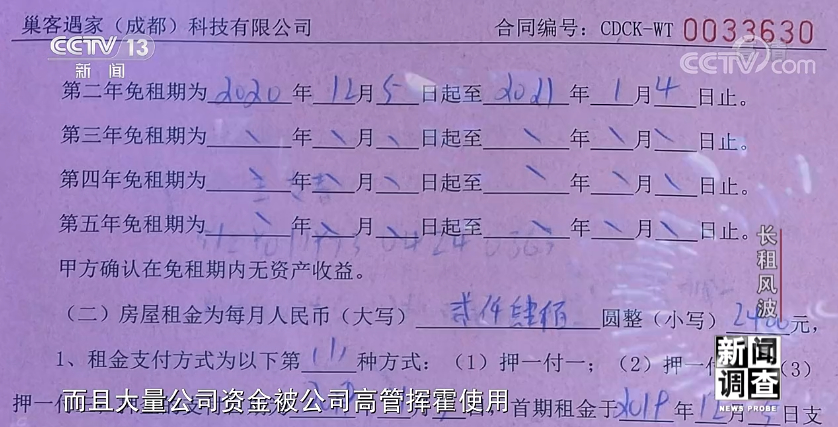 巢客遇家（成都）科技有限公司 合同编号：CDCK-WT 0033630
CCTV 13
新闻
CCTV.com
第二年免租期为2020年12月5日起至2021年1月4日止。
第三年免租期为、年、月、日起至、年、月、日止。
第四年免租期为、年、月、日起至、年、月、日止。
第五年免租期为、年、月、日起至、年、月、日止。
甲方确认在免租期内无资产收益。
（二）房屋租金为每月人民币（大写）贰仟肆佰圆整（小写）2400元，
1、租金支付方式为以下第(1)种方式：（1）押一付一；（2）押一付 （3）
押一付 首期租金于2019年12月 日支
而且大量公司资金被公司高管挥霍使用
长租风波
新闻
调查
NEWS PROBE